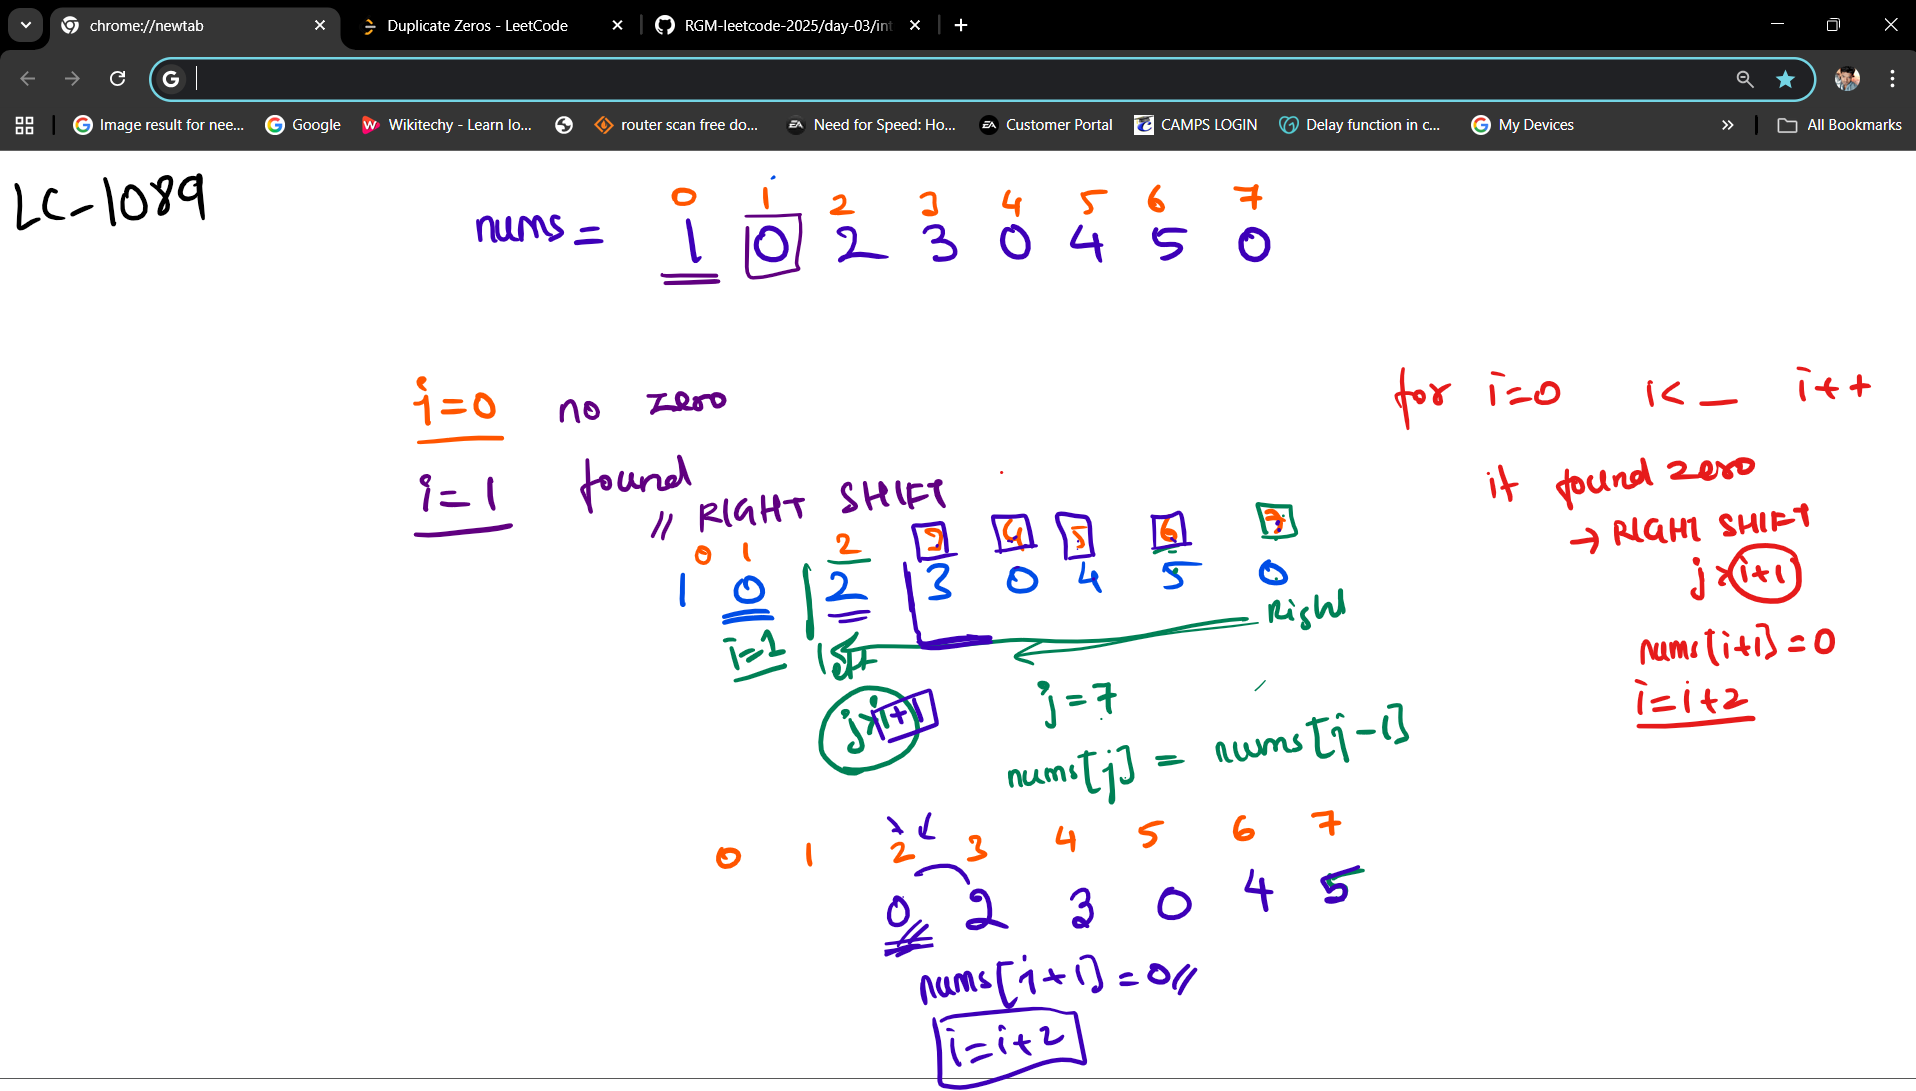 chrome://newtab
Duplicate Zeros - LeetCode
RGM-leetcode-2025/day-03/int
Image result for nee...
Google
Wikitechy - Learn lo...
router scan free do...
Need for Speed: Ho...
Customer Portal
CAMPS LOGIN
Delay function in c...
My Devices
All Bookmarks
LC-1089
0 1 2 3 4 5 6 7
nums = 1 0 2 3 0 4 5 0
i=0 no zero
i=1 found
// RIGHT SHIFT
0 1 2 3 4 5 6 7
1 0 2 3 0 4 5 0
i=1 left Right
j>i+1 j=7
nums[j] = nums[j-1]
0 1 2 3 4 5 6 7
0 2 3 0 4 5
nums[i+1] = 0//
i=i+2
for i=0 i<_ i++
if found zero
→ RIGHT SHIFT
j>i+1
nums[i+1]=0
i=i+2